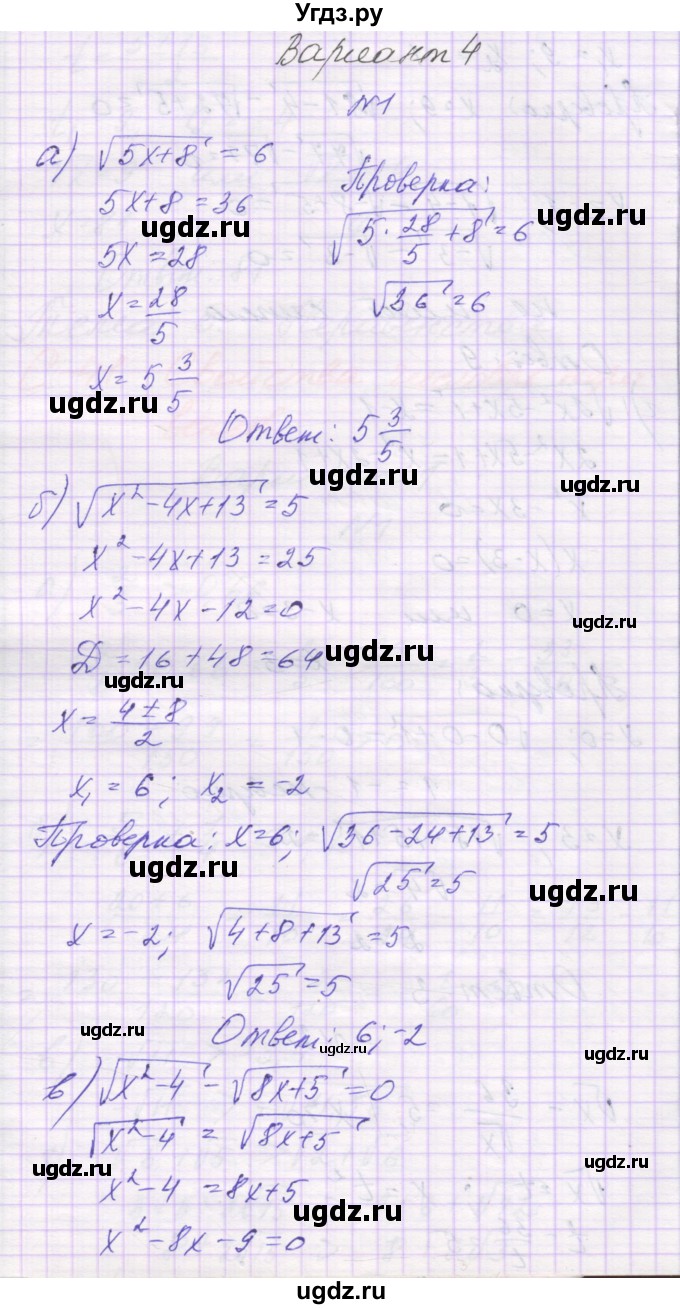 Угдз.ру
Вариант 4
№1
а) √(5x+8) = 6
5x+8 = 36
ugdz.ru
5x = 28
x = 28/5
x = 5 3/5
ugdz.ru
Проверка:
ugdz.ru
√(5 · 28/5 + 8) = 6
ugdz.ru
√36 = 6
ugdz.ru
Ответ: 5 3/5
ugdz.ru
ugdz.ru
б) √(x²-4x+13) = 5
x²-4x+13 = 25
ugdz.ru
x²-4x-12=0
ugdz.ru
Д = 16+48 = 64
ugdz.ru
ugdz.ru
x = (4±8)/2
x₁ = 6; x₂ = -2
ugdz.ru
Проверка: x=6; √(36-24+13) = 5
ugdz.ru
√25 = 5
ugdz.ru
x = -2; √(4+8+13) = 5
√25 = 5
ugdz.ru
Ответ: 6; -2
ugdz.ru
ugdz.ru
в) √(x²-4) - √(8x+5) = 0
√(x²-4) = √(8x+5)
ugdz.ru
ugdz.ru
x²-4 = 8x+5
ugdz.ru
x²-8x-9=0
ugdz.ru
ugdz.ru